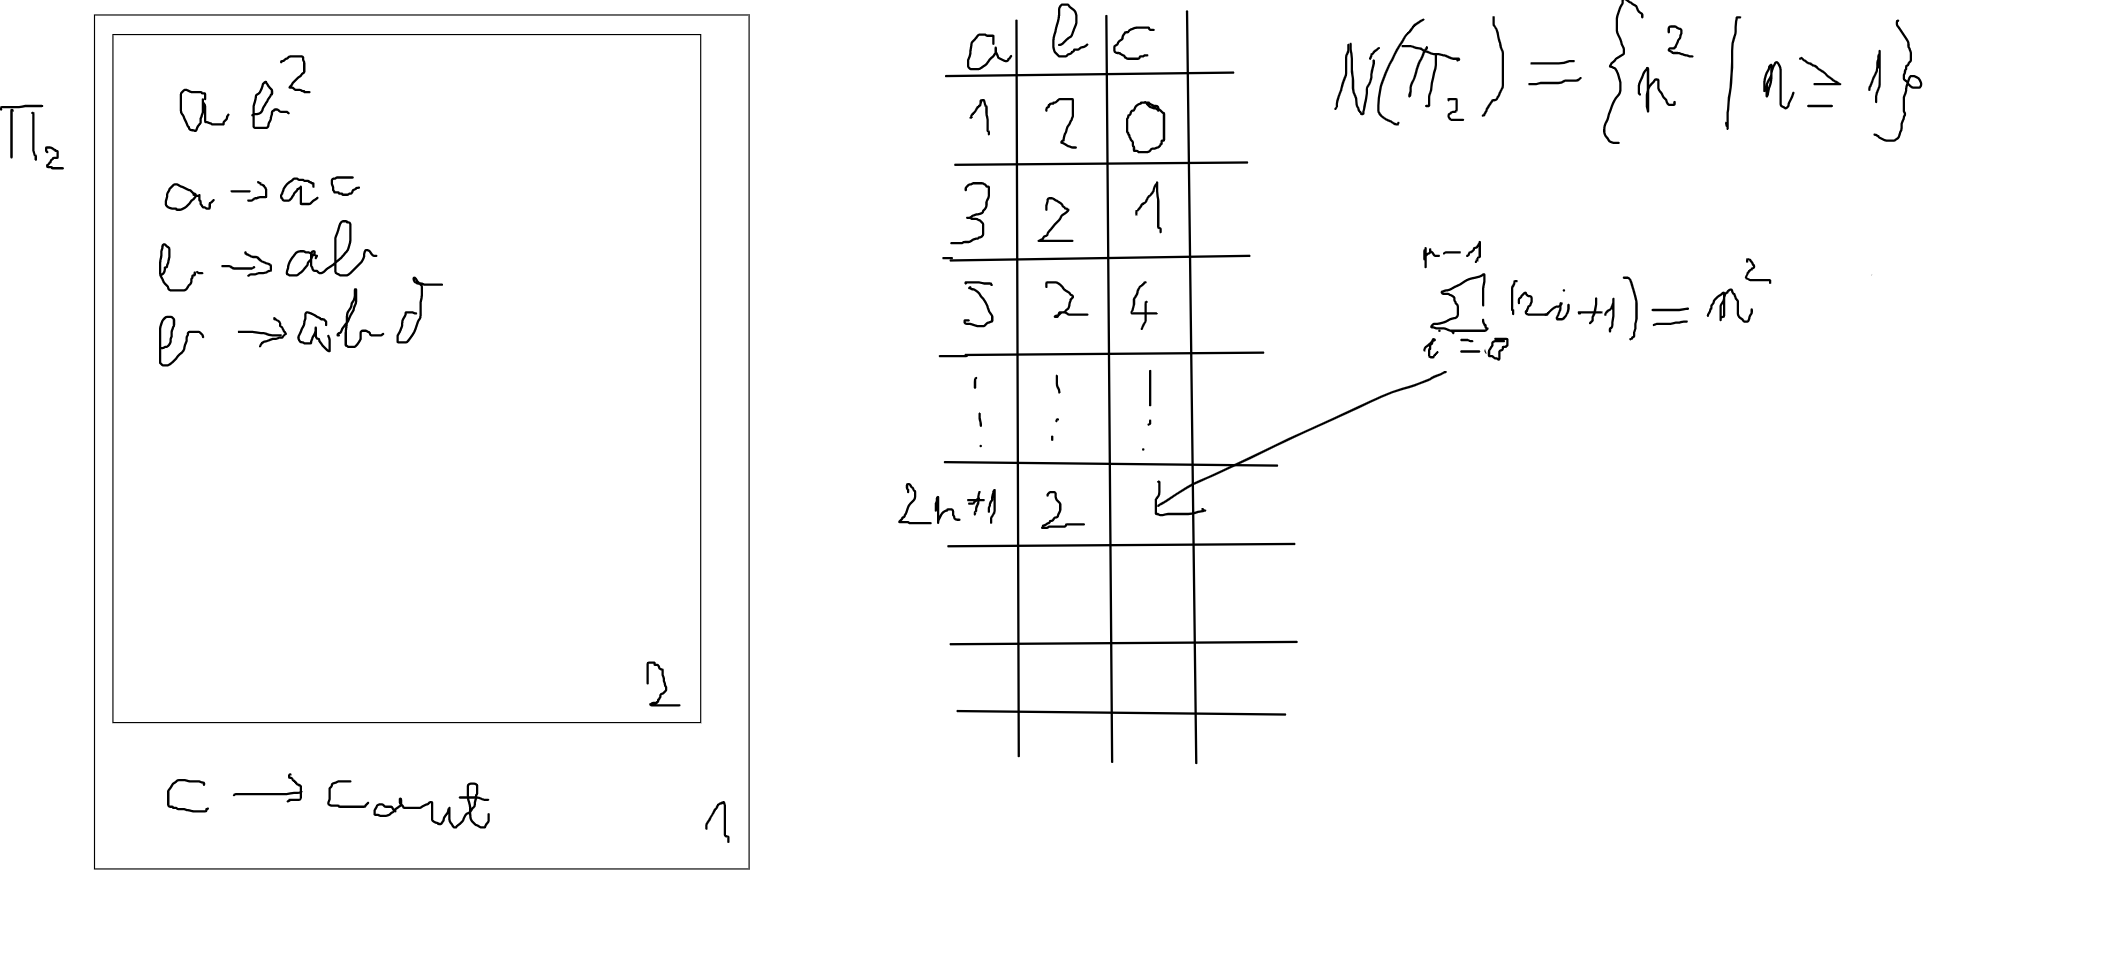 Π₂
a b²
a → ac
b → ab
b → abδ
2
c → c_out
1
a b c
1 2 0
3 2 1
5 2 4
⋮ ⋮ ⋮
2n+1 2
N(Π₂) = {n² | n ≥ 1}
∑_{i=0}^{n-1} (2i+1) = n²